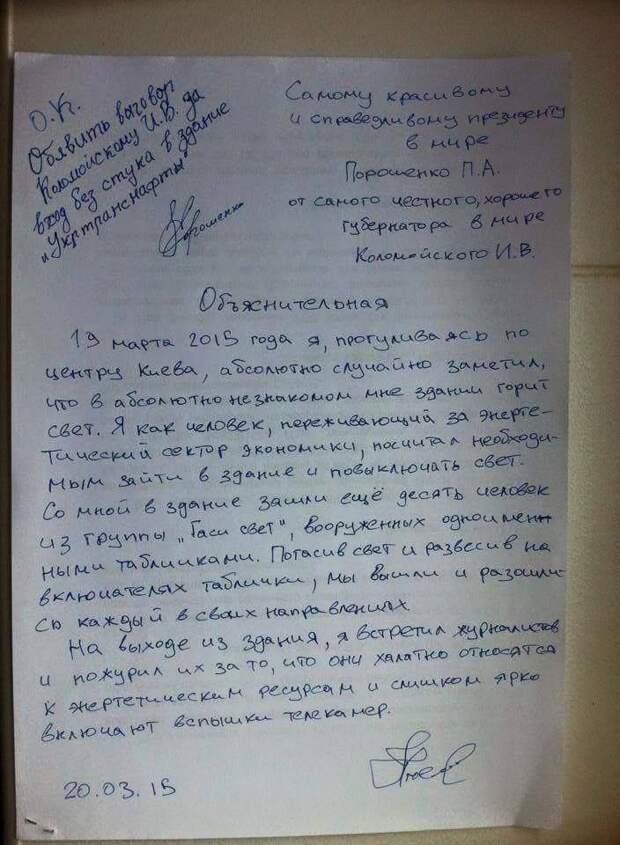 О.Ук.
Обявить выговор
Коломойскому И.В. за
вход без стука в здание
„Укртранснафты"
Порошенко
Самому красивому
и справедливому президенту
в мире
Порошенко П.А.
от самого честного, хорошего
губернатора в мире
Коломойского И.В.
Объяснительная
19 марта 2015 года я, прогуливаясь по
центру Киева, абсолютно случайно заметил,
что в абсолютно незнакомом мне здании горит
свет. Я как человек, переживающий за энерте-
тический сектор экономики, посчитал необходи-
мым зайти в здание и повыключать свет.
Со мной в здание зашли ещё десять человек
из группы „Гаси свет", вооруженных одноимен-
ными табличками. Потасив свет и развесив на
включателях таблички, мы вышли и разошли-
сь каждый в своих направлениях.
На выходе из здания, я встретил журналистов
и пожурил их за то, что они халатно относятся
к энертетическим ресурсам и слишком ярко
включают вспышки телекамер.
20.03.15